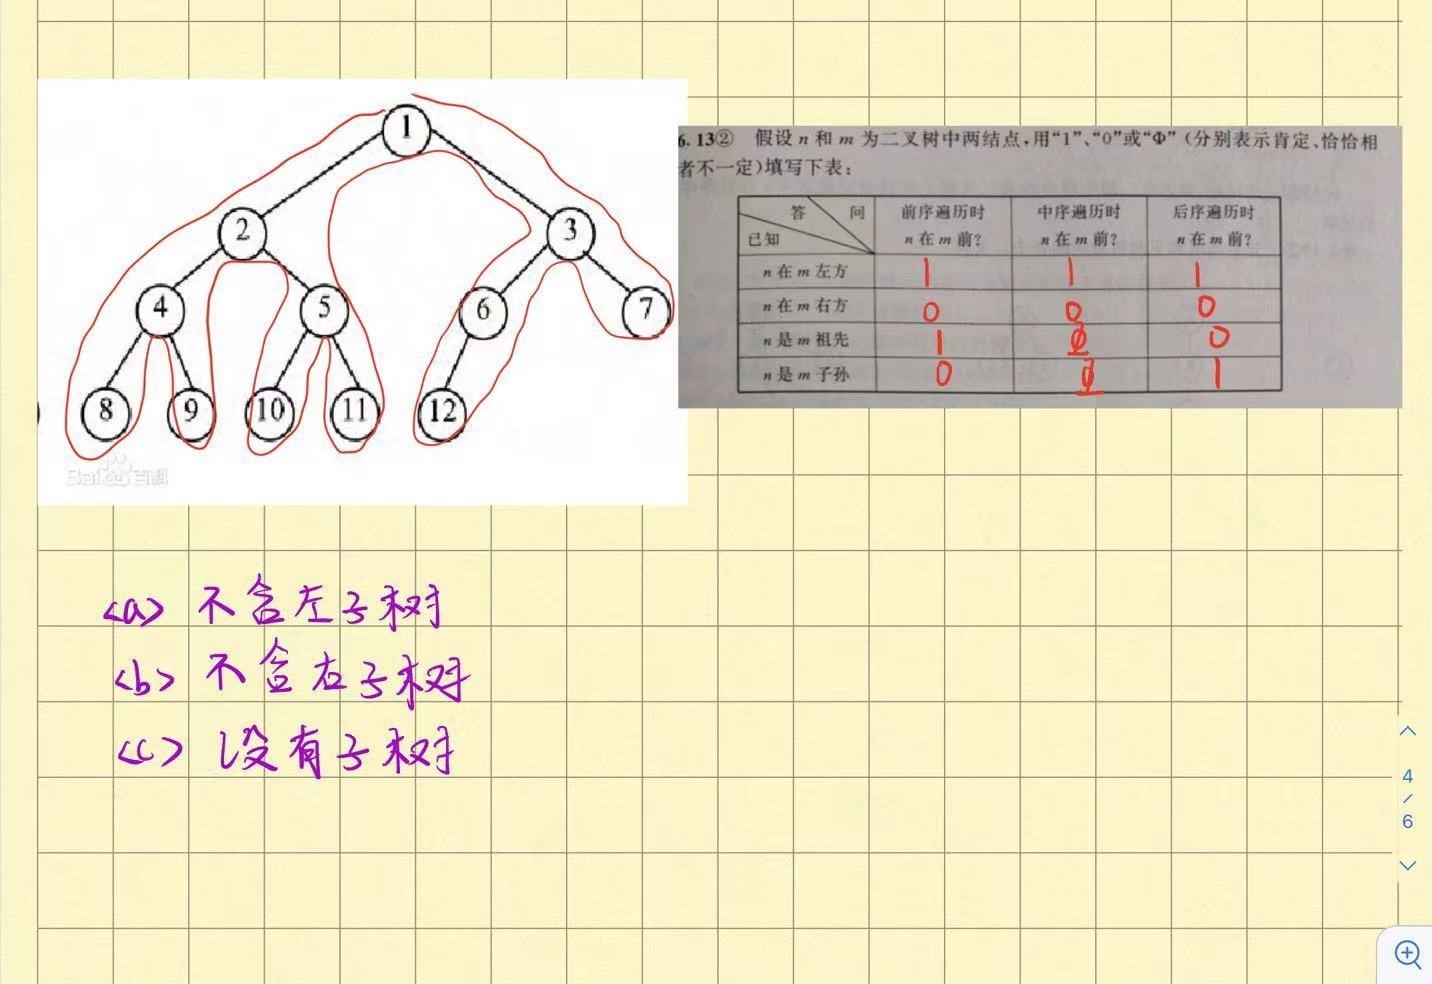 1
2
3
4
5
6
7
8
9
10
11
12
Baidu百科
6.13② 假设 n 和 m 为二叉树中两结点,用“1”、“0”或“Φ”(分别表示肯定、恰恰相
者不一定)填写下表:
答 问 前序遍历时 中序遍历时 后序遍历时
已知 n 在 m 前? n 在 m 前? n 在 m 前?
n 在 m 左方 1 1 1
n 在 m 右方 0 0 0
n 是 m 祖先 1 Φ 0
n 是 m 子孙 0 Φ 1
<a> 不含左子树
<b> 不含右子树
<c> 没有子树
4
/
6